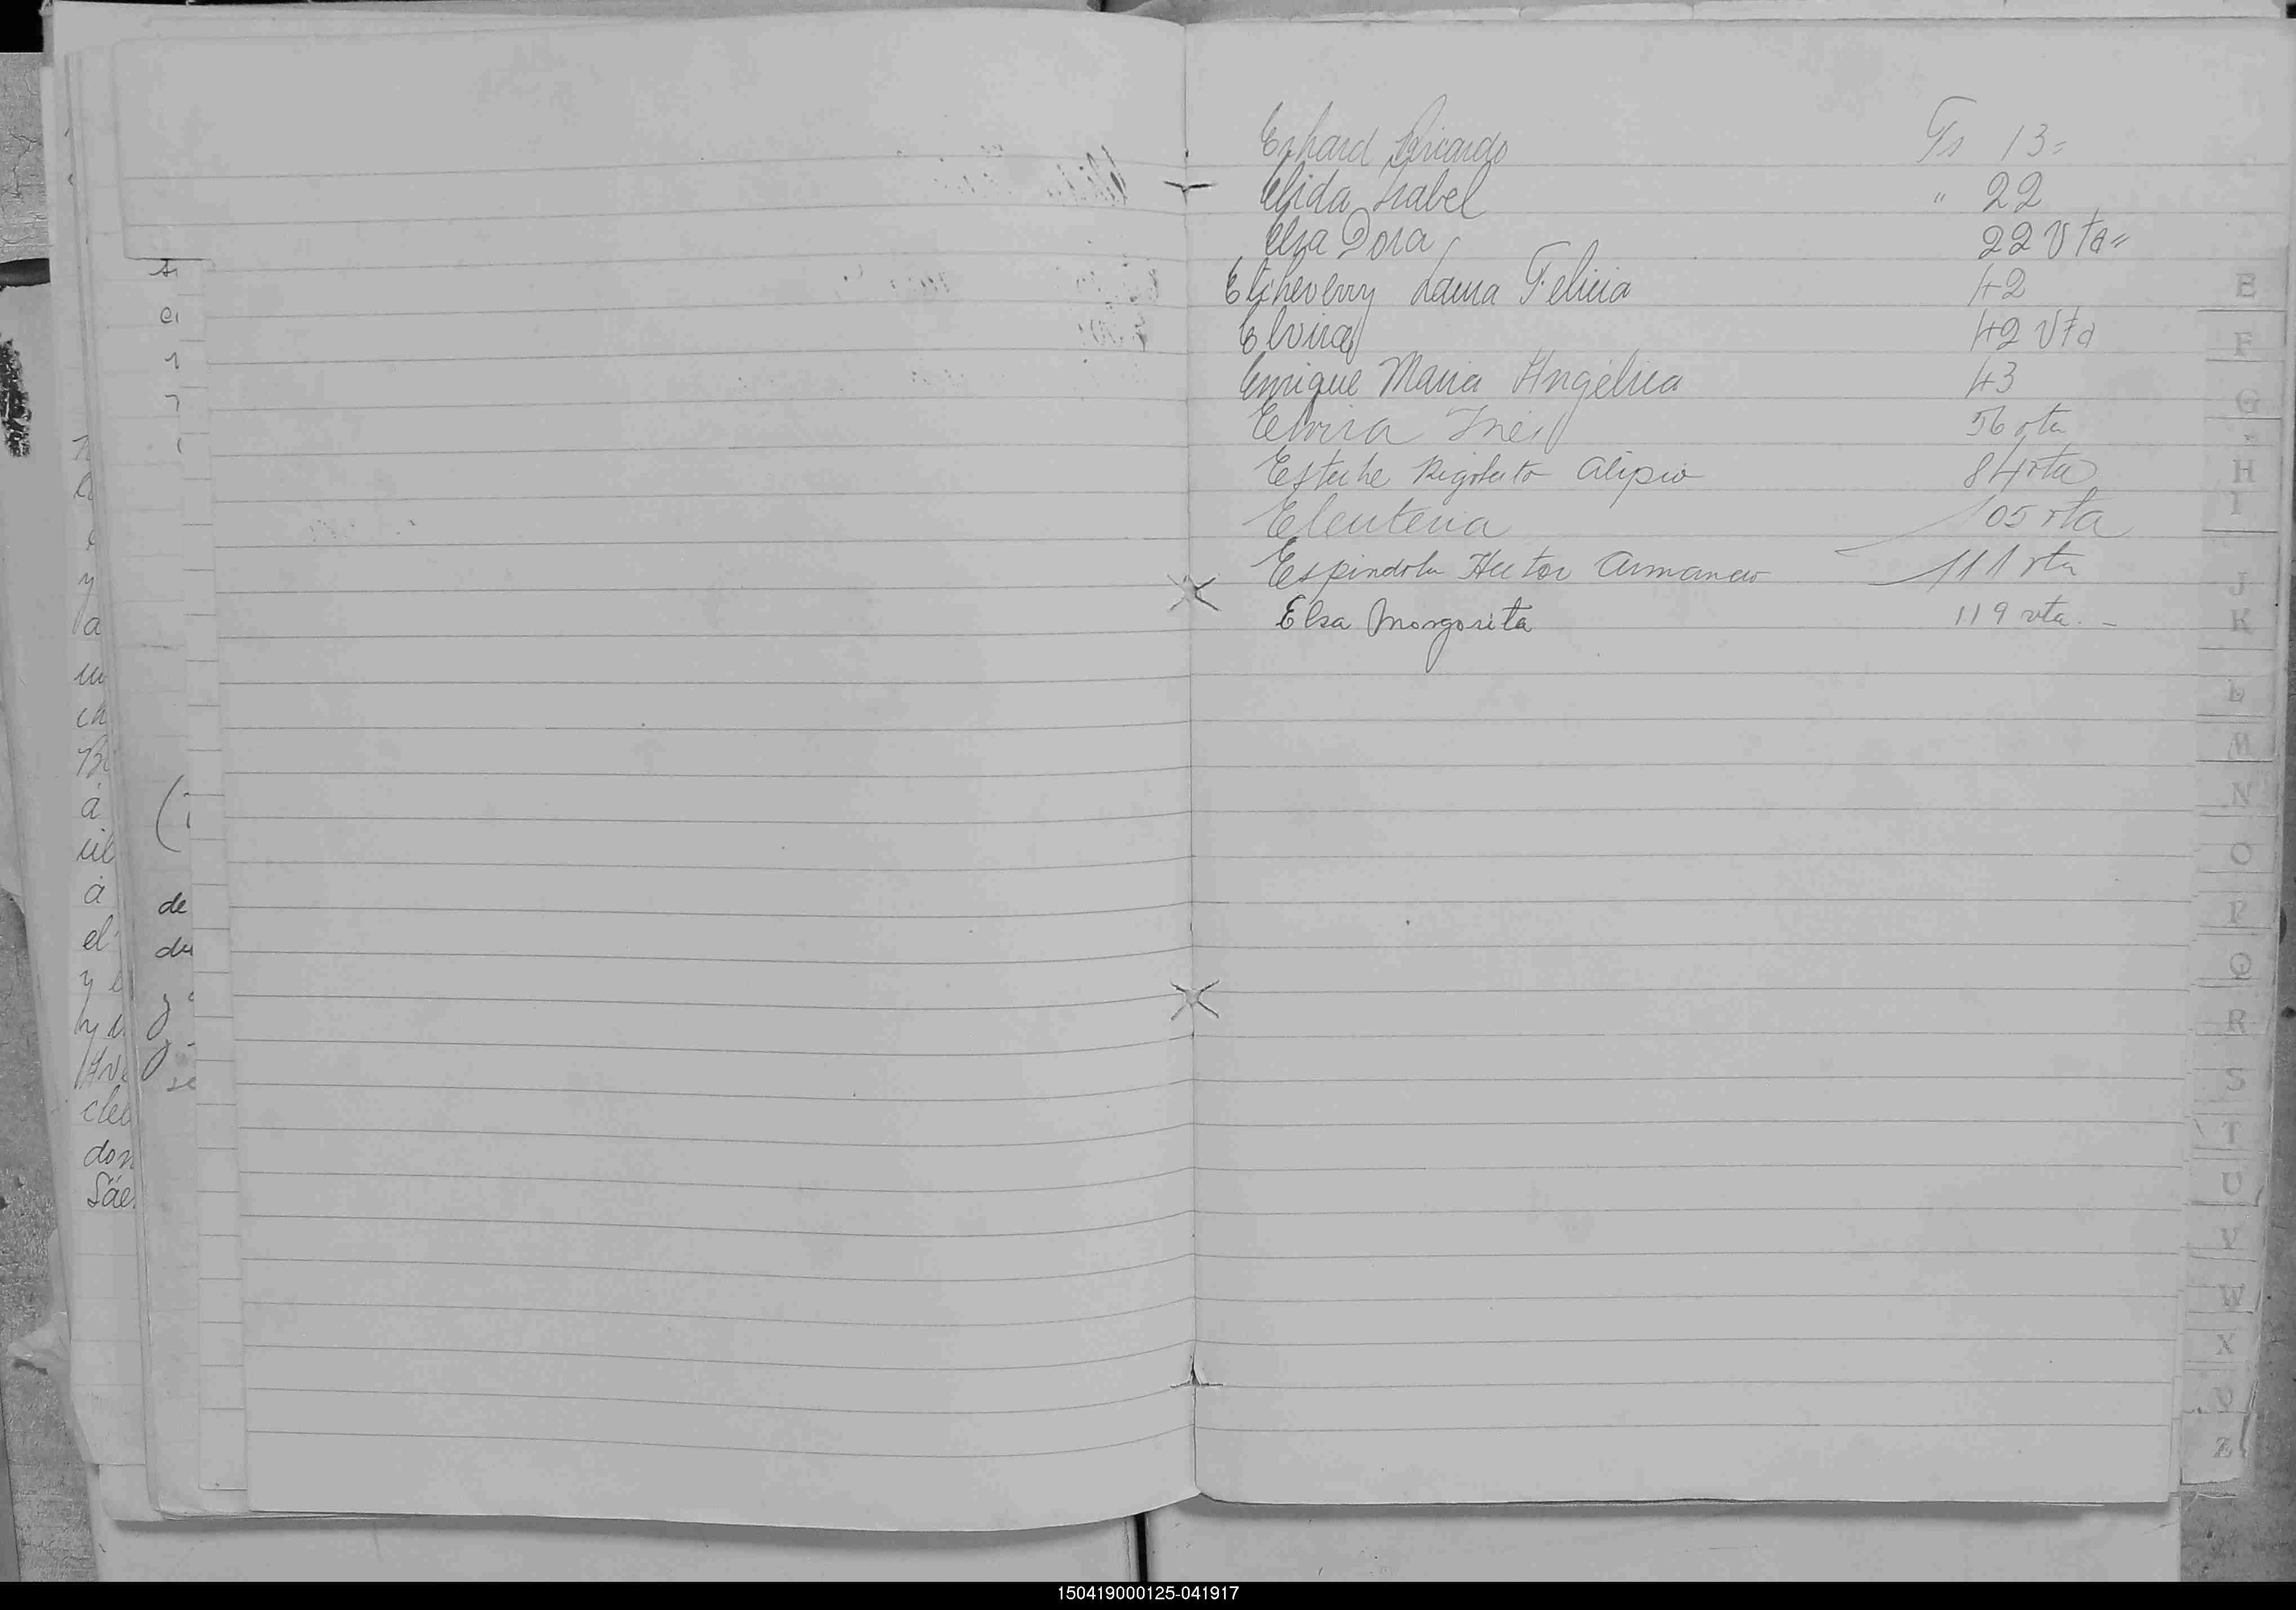 Erhard Ricardo Fs 13=
Elida Isabel " 22
Elsa Dora 22 Vta=
Etcheverry Laura Felicia 42
Elvira 42 Vta
Enrique Maria Angélica 43
Elvira Inés 56 vta
Esteche Rigoberto Alipio 84 vta
Eleuteria 105 vta
Espindola Hector Armando 111 vta
Elsa Margarita 119 vta. -
E
F
G
H
I
J
K
L
M
N
O
P
Q
R
S
T
U
V
W
X
Z
a
ch
á
á
el
de
don
150419000125-041917